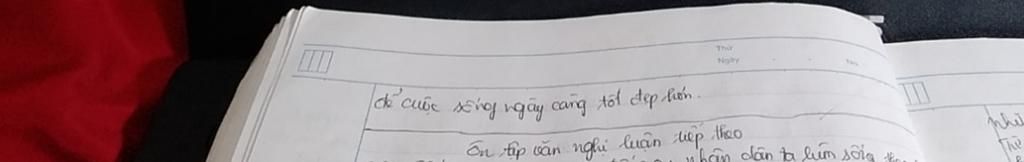 Thứ
Ngày
No
để cuộc sống ngày càng tốt đẹp hơn.
Ôn tập văn nghị luận tiếp theo
nhân dân ta luôn sống